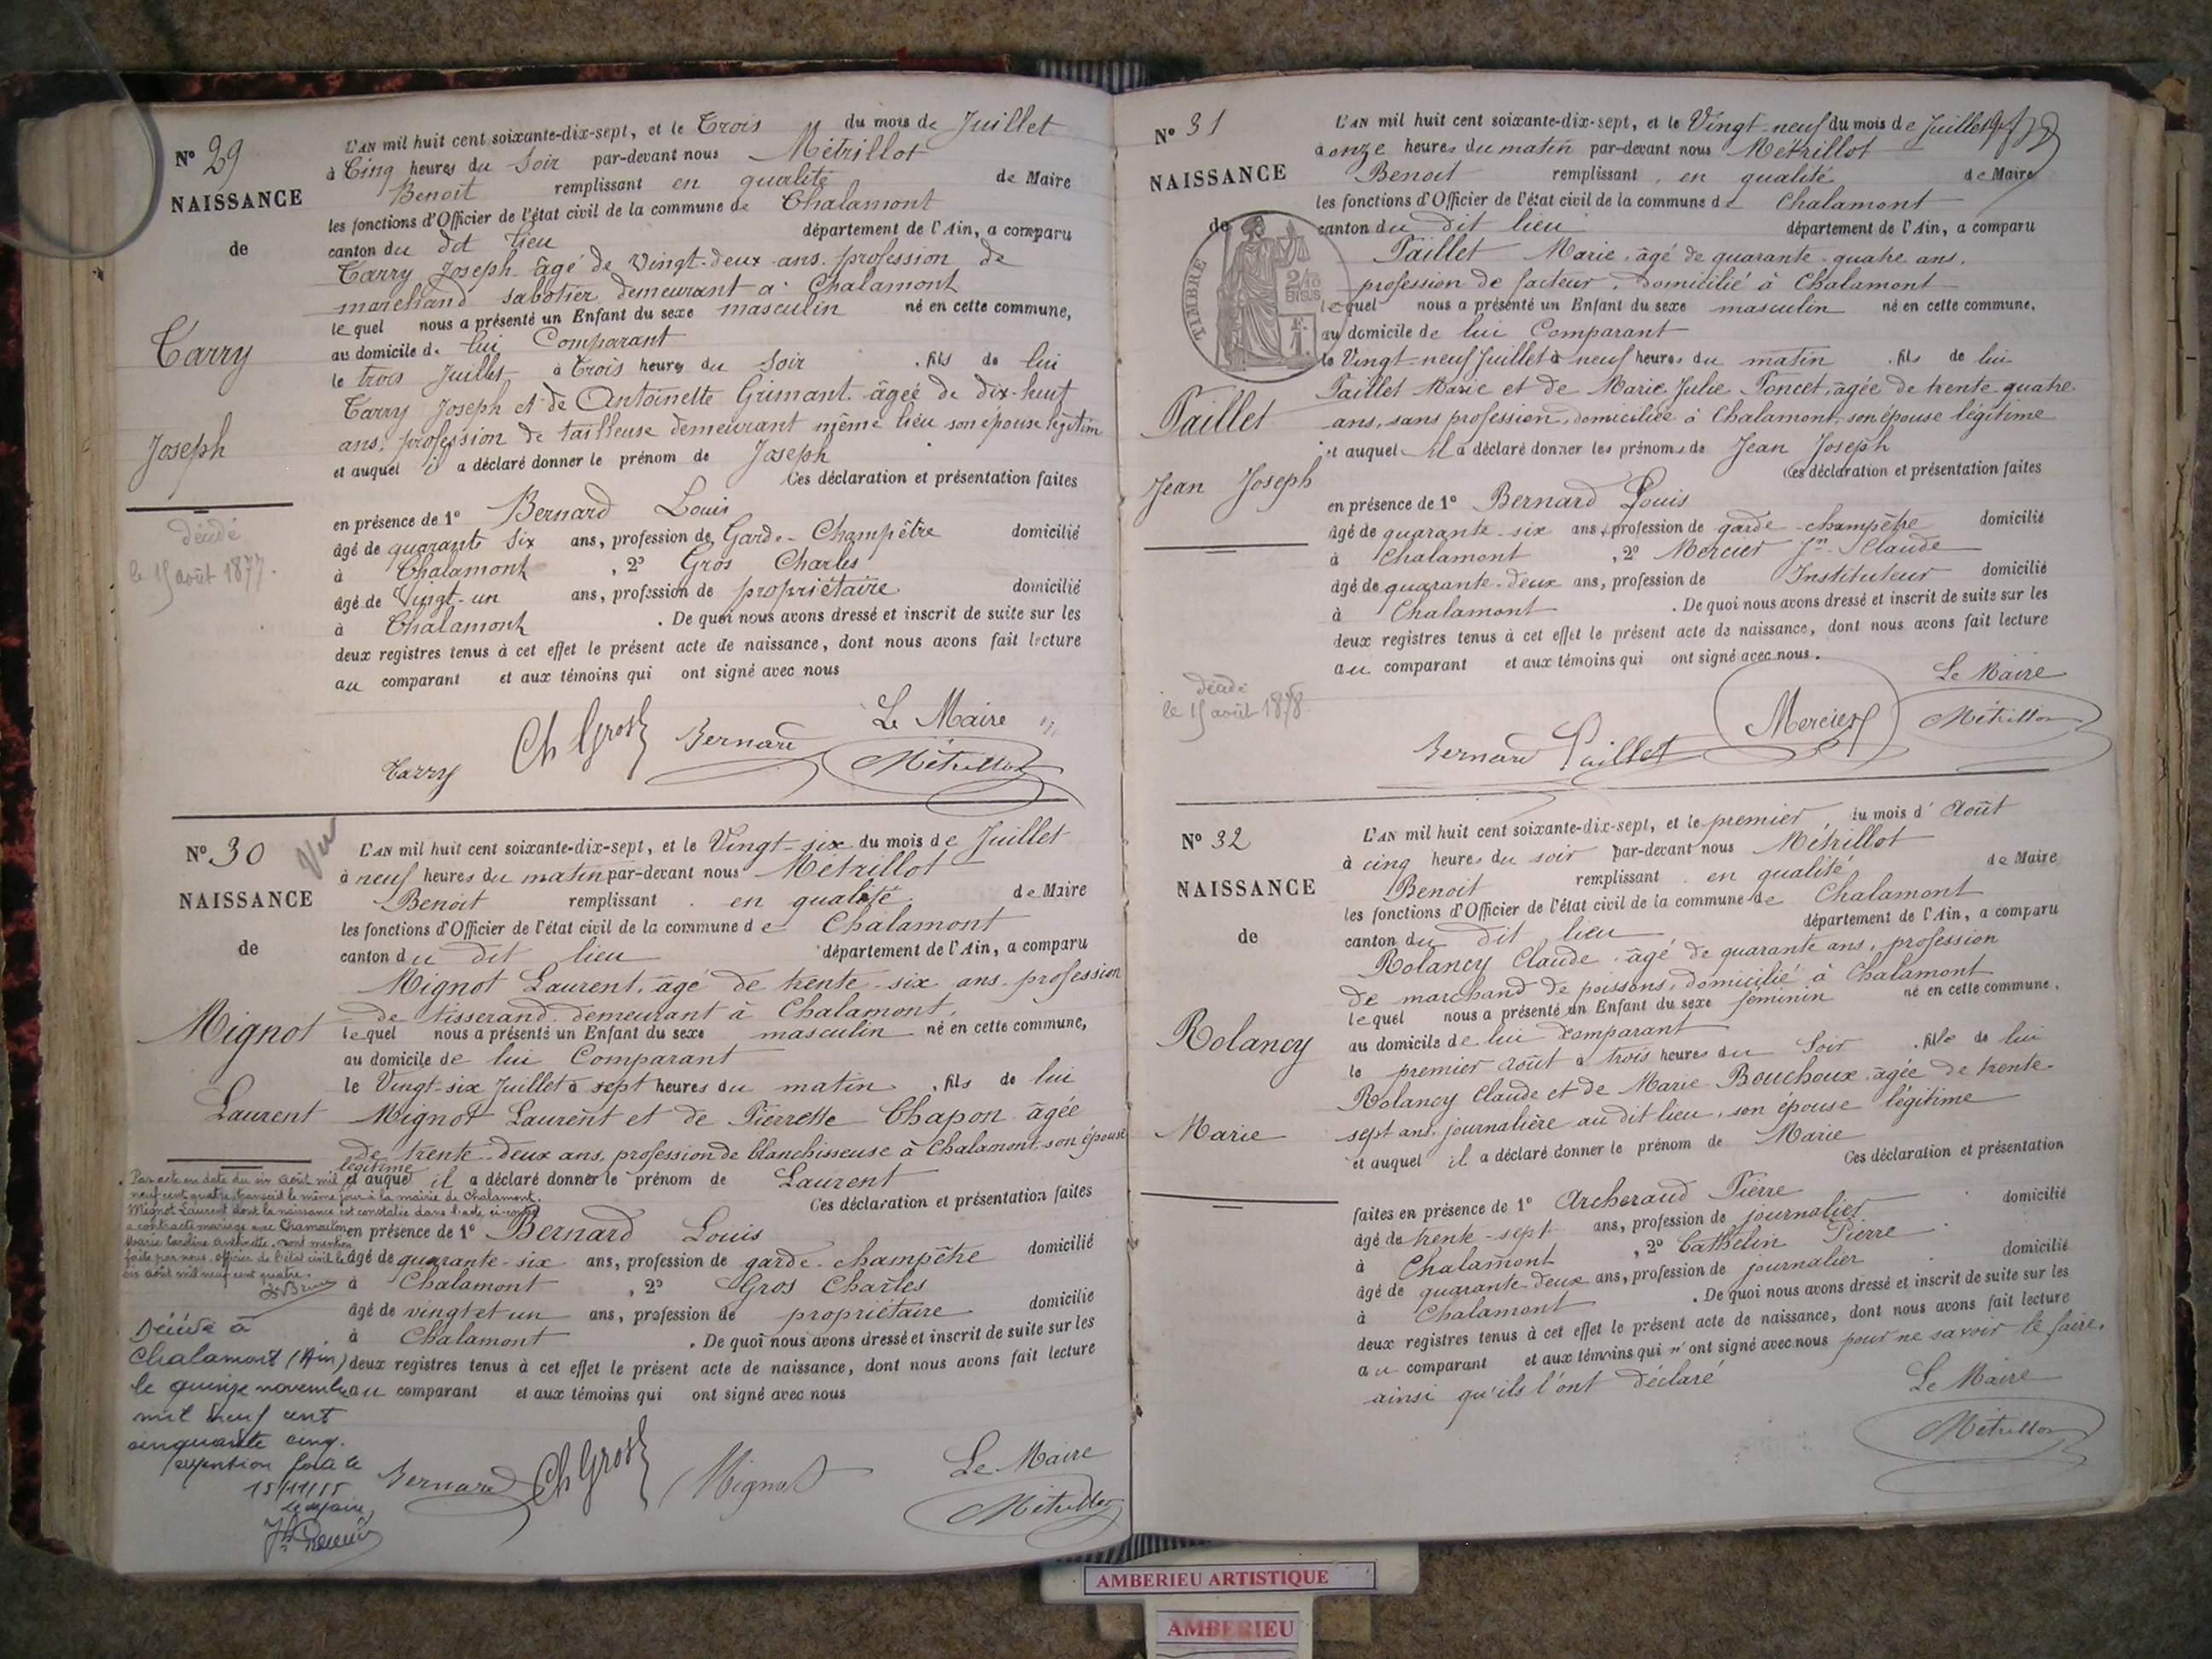 N° 29
NAISSANCE
de
Carry
Joseph
décédé
le 15 août 1877.
L'AN mil huit cent soixante-dix-sept, et le Trois du mois de Juillet
à Cinq heures du Soir par-devant nous Métrillot
Benoit remplissant en qualité de Maire
les fonctions d'Officier de l'état civil de la commune de Chalamont
canton du dit lieu département de l'Ain, a comparu
Carry Joseph âgé de Vingt-deux ans profession de
marchand sabotier demeurant à Chalamont
lequel nous a présenté un Enfant du sexe masculin né en cette commune,
au domicile de lui Comparant
le trois Juillet à Trois heures du Soir . fils de lui
Carry Joseph et de Antoinette Grimant âgée de dix-huit
ans, profession de tailleuse demeurant même lieu son épouse légitim
et auquel il a déclaré donner le prénom de Joseph
Ces déclaration et présentation faites
en présence de 1° Bernard Louis
âgé de quarante six ans, profession de Garde-Champêtre domicilié
à Chalamont , 2° Gros Charles
âgé de Vingt-un ans, profession de propriétaire domicilié
à Chalamont . De quoi nous avons dressé et inscrit de suite sur les
deux registres tenus à cet effet le présent acte de naissance, dont nous avons fait lecture
au comparant et aux témoins qui ont signé avec nous
Le Maire
Carry Ch Gros Bernard Métrillot
N° 30
Vu
NAISSANCE
de
Mignot
Laurent
L'AN mil huit cent soixante-dix-sept, et le Vingt-six du mois de Juillet
à neuf heures du matin par-devant nous Métrillot
Benoit remplissant en qualité de Maire
les fonctions d'Officier de l'état civil de la commune de Chalamont
canton du dit lieu département de l'Ain, a comparu
Mignot Laurent, âgé de trente-six ans profession
de tisserand demeurant à Chalamont,
lequel nous a présenté un Enfant du sexe masculin né en cette commune,
au domicile de lui Comparant
le Vingt-six Juillet à sept heures du matin , fils de lui
Mignot Laurent et de Pierrette Chapon âgée
de trente-deux ans, profession de blanchisseuse à Chalamont, son épouse
légitime
et auquel il a déclaré donner le prénom de Laurent
Ces déclaration et présentation faites
en présence de 1° Bernard Louis
âgé de quarante-six ans, profession de garde-champêtre domicilié
à Chalamont , 2° Gros Charles
âgé de vingt et un ans, profession de propriétaire domicilié
à Chalamont . De quoi nous avons dressé et inscrit de suite sur les
deux registres tenus à cet effet le présent acte de naissance, dont nous avons fait lecture
au comparant et aux témoins qui ont signé avec nous
Par acte en date du six août mil
neuf cent quatre, transcrit le même jour à la mairie de Chalamont.
Mignot Laurent dont la naissance est constatée dans l'acte ci-contre
a contracté mariage avec Chamouton
Marie Caroline Antoinette. dont mention
faite par nous, officier de l'état civil le
six août mil neuf cent quatre.
Décédé à
Chalamont (Ain)
le quinze novembre
mil neuf cent
cinquante cinq.
mention faite le
15/11/55
le maire
Bernard Ch Gros Mignot
Le Maire
Métrillot
N° 31
NAISSANCE
de
TIMBRE
2/10
EN SUS
F.
1
Paillet
Jean Joseph
décédé
le 15 août 1878
L'AN mil huit cent soixante-dix-sept, et le Vingt-neuf du mois de Juillet
à onze heures du matin par-devant nous Métrillot
Benoit remplissant en qualité de Maire
les fonctions d'Officier de l'état civil de la commune de Chalamont
canton du dit lieu département de l'Ain, a comparu
Paillet Marie, âgé de quarante-quatre ans,
profession de facteur, domicilié à Chalamont
lequel nous a présenté un Enfant du sexe masculin né en cette commune,
au domicile de lui Comparant
le Vingt-neuf Juillet à neuf heures du matin . fils de lui
Paillet Marie et de Marie Julie Poncet, âgée de trente-quatre
ans, sans profession, domiciliée à Chalamont, son épouse légitime
et auquel il a déclaré donner les prénoms de Jean Joseph
Ces déclaration et présentation faites
en présence de 1° Bernard Louis
âgé de quarante-six ans, profession de garde-champêtre domicilié
à Chalamont , 2° Mercier Jn Claude
âgé de quarante-deux ans, profession de Instituteur domicilié
à Chalamont . De quoi nous avons dressé et inscrit de suite sur les
deux registres tenus à cet effet le présent acte de naissance, dont nous avons fait lecture
au comparant et aux témoins qui ont signé avec nous.
Le Maire
Bernard Paillet Mercier Métrillot
N° 32
NAISSANCE
de
Rolancy
Marie
L'AN mil huit cent soixante-dix-sept, et le premier du mois d'Août
à cinq heures du soir par-devant nous Métrillot
Benoit remplissant en qualité de Maire
les fonctions d'Officier de l'état civil de la commune de Chalamont
canton du dit lieu département de l'Ain, a comparu
Rolancy Claude, âgé de quarante ans, profession
de marchand de poissons, domicilié à Chalamont
lequel nous a présenté un Enfant du sexe féminin né en cette commune,
au domicile de lui comparant
le premier août à trois heures du Soir . fille de lui
Rolancy Claude et de Marie Bouchoux, âgée de trente-
sept ans, journalière au dit lieu, son épouse légitime
et auquel il a déclaré donner le prénom de Marie
Ces déclaration et présentation
faites en présence de 1° Archeraud Pierre
âgé de trente-sept ans, profession de journalier domicilié
à Chalamont , 2° Cathelin Pierre
âgé de quarante-deux ans, profession de journalier domicilié
à Chalamont . De quoi nous avons dressé et inscrit de suite sur les
deux registres tenus à cet effet le présent acte de naissance, dont nous avons fait lecture
au comparant et aux témoins qui n'ont signé avec nous pour ne savoir le faire,
ainsi qu'ils l'ont déclaré
Le Maire
Métrillot
AMBERIEU ARTISTIQUE
AMBERIEU